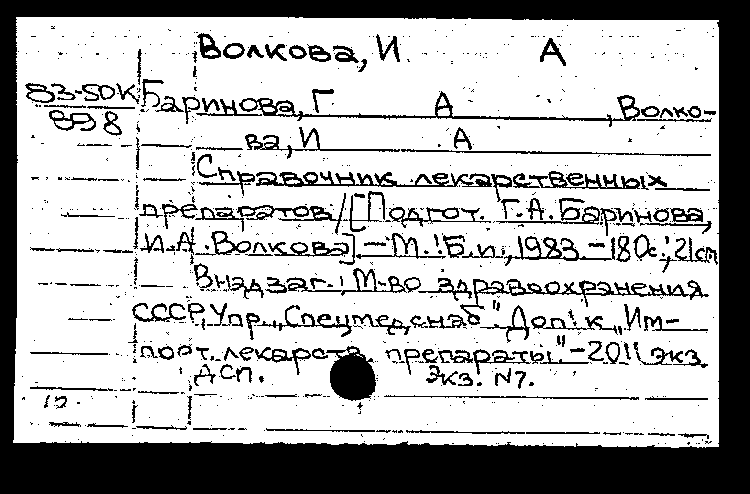 Волкова, И А
83-50К Баринова, Г А , Волко-
898 ва, И А
Справочник лекарственных
препаратов / [Подгот. Г.А. Баринова,
И.А. Волкова]. – М.: Б.и., 1983. – 180с.; 21см
В надзаг.: М-во здравоохранения
СССР, Упр. „Спецмедснаб". Доп. к „Им-
порт. лекарств. препараты" – 2011 экз.
ДСП. Экз. №7.